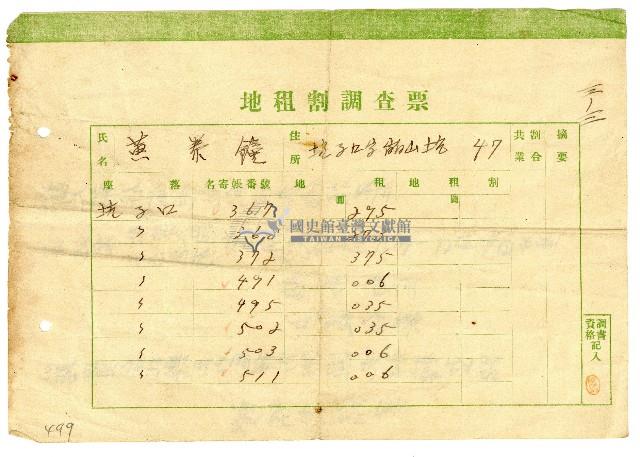 地租割調査票
三ノ三
氏名 黃 住所 坑子口字 47 共業 割合 摘要
座落 名寄帳番號 地租 地租割
圓 圓
坑子口 367 275
國史館臺灣文獻館
TAIWAN HISTORICA
〃 372 375
〃 491 006
〃 495 035
〃 502 035
〃 503 006
〃 511 006
調書記入資格
499